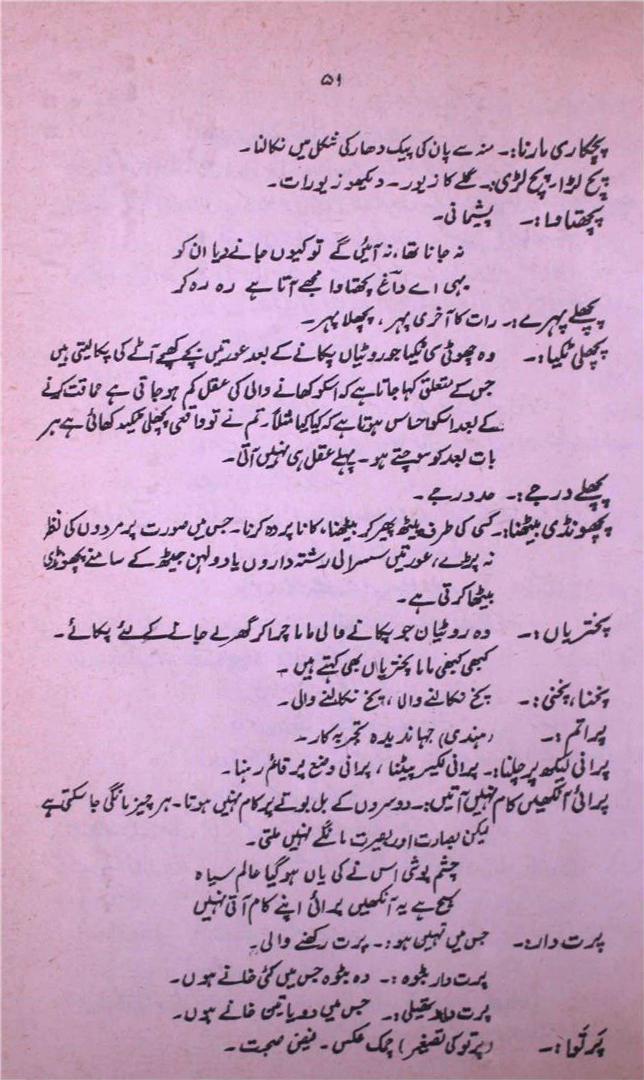 ۵۱
پچکاری مارنا:۔ منہ سے پان کی پیک دھار کی شکل میں نکالنا۔
پچ لڑا، پچ لڑی:۔ گلے کا زیور۔ دیکھو زیورات۔
پچھتاوا:۔ پشیمانی۔
نہ جانا تھا، نہ آئیں گے تو کیوں جانے دیا ان کو
یہی اے داغؔ پچھتاوا مجھے آتا ہے رہ رہ کر
پچھلے پہرے:۔ رات کا آخری پہر، پچھلا پہر۔
پچھلی ٹکیا:۔ وہ چھوٹی سی ٹکیا جو روٹیاں پکانے کے بعد عورتیں بچے کھچے آٹے کی پکا لیتی ہیں
جس کے متعلق کہا جاتا ہے کہ اسکو کھانے والی کی عقل کم ہو جاتی ہے حماقت کرنے
کے بعد اسکو احساس ہوتا ہے کہ کیا کیا مثلاً۔ تم نے تو واقعی پچھلی ٹکیہ کھائی ہے ہر
بات بعد کو سوچتے ہو۔ پہلے عقل ہی نہیں آتی۔
پچھلے درجے:۔ حد درجے۔
پچھونڈی بیٹھنا:۔ کسی کی طرف پیٹھ پھیر کر بیٹھنا، کانا پردہ کرنا۔ جس میں صورت پر مردوں کی نظر
نہ پڑے، عورتیں سسرالی رشتہ داروں یا دولہن جیٹھ کے سامنے پچھونڈی
بیٹھا کرتی ہے۔
پختریاں:۔ وہ روٹیاں جو پکانے والی ماما چرا کر گھر لے جانے کے لئے پکائے۔
کبھی کبھی ماما پختریاں بھی کہتے ہیں۔
پخنا، پخنی:۔ پخ نکالنے والا، پخ نکالنے والی۔
پراتم:۔ (ہندی) جہاندیدہ تجربہ کار۔
پرانی لیکھ پر چلنا:۔ پرانی لکیر پیٹنا، پرانی وضع پر قائم رہنا۔
پرائی آنکھیں کام نہیں آتیں:۔ دوسروں کے بل بوتے پر کام نہیں ہوتا۔ ہر چیز مانگی جا سکتی ہے
لیکن بصارت اور بصیرت مانگے نہیں ملتی۔
چشم پوشی اس نے کی یاں ہو گیا عالم سیاہ
سچ ہے یہ آنکھیں پرائی اپنے کام آتی نہیں
پرت دار:۔ جس میں تہیں ہو:۔ پرت رکھنے والی۔
پرت دار بٹوہ:۔ وہ بٹوہ جس میں کئی خانے ہوں۔
پرت دار تھیلی:۔ جس میں دو یا تین خانے ہوں۔
پَرتَوا:۔ (پرتو کی تصغیر) چمک عکس۔ فیض صحبت۔